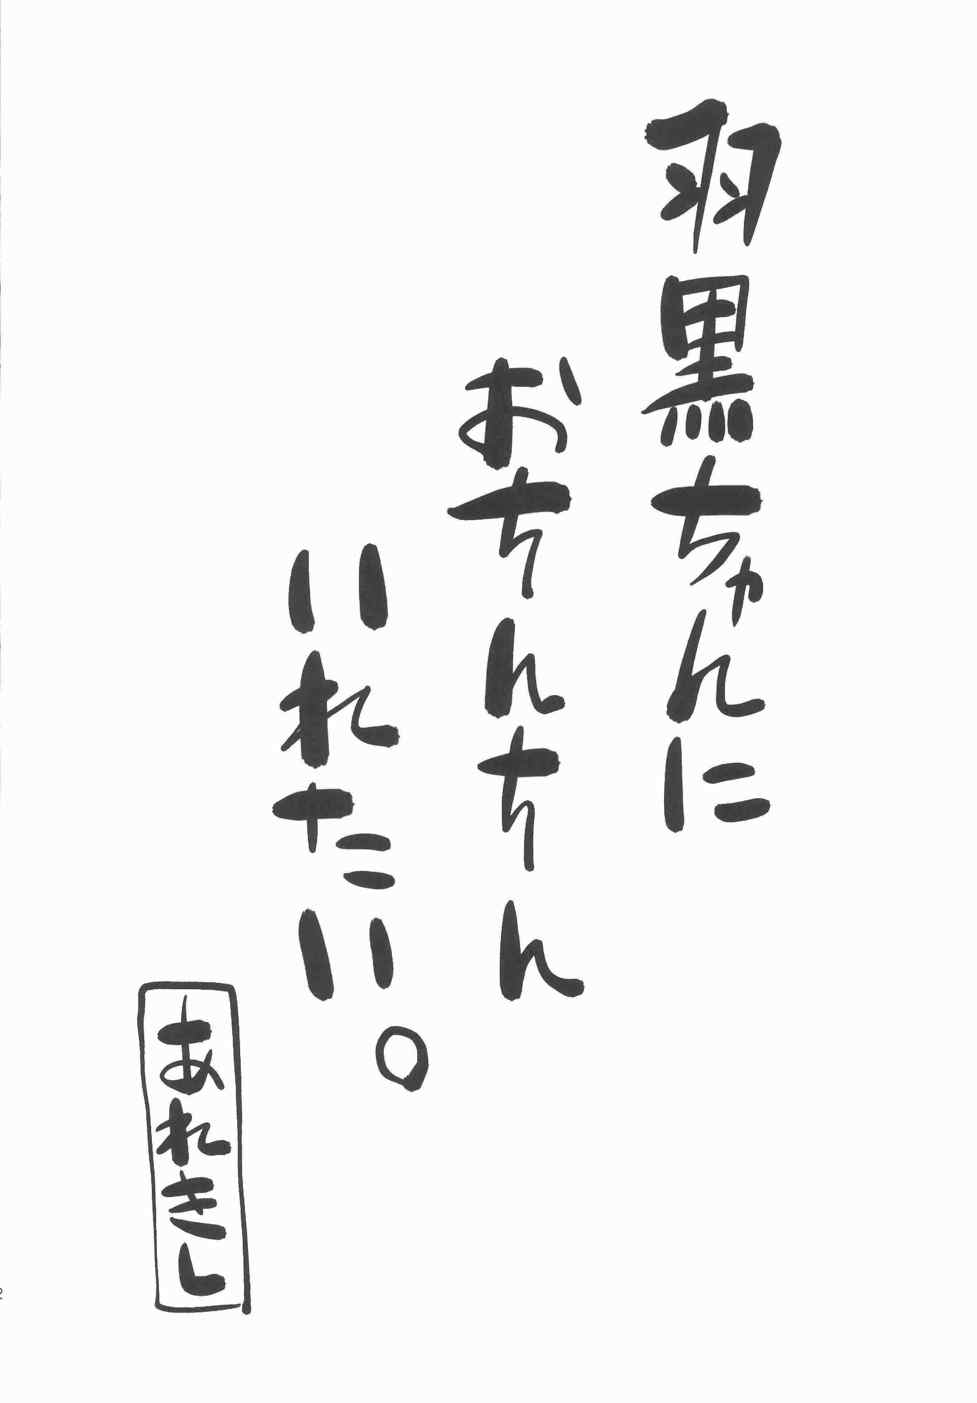 羽黒ちゃんに
おちんちん
いれたい。
あれきし
2